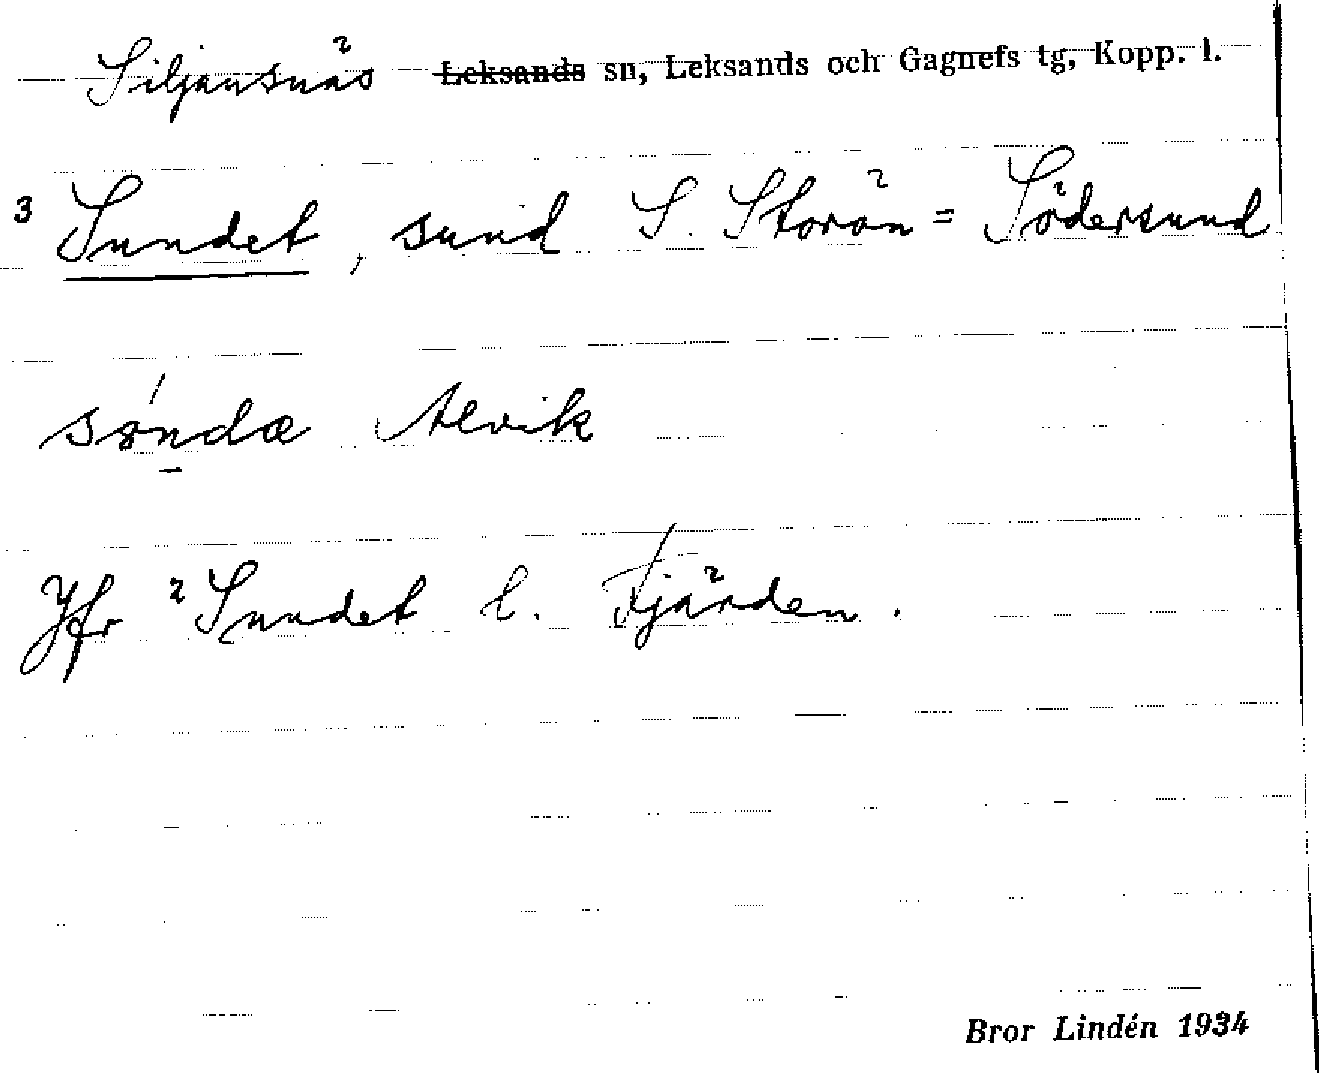 Siljansnäs ~~Leksands~~ sn, Leksands och Gagnefs tg, Kopp. l.
3 Sundet, sund S. Storön = Södersund
Alvik
Jfr ²Sundet l. Fjärden.
Bror Lindén 1934